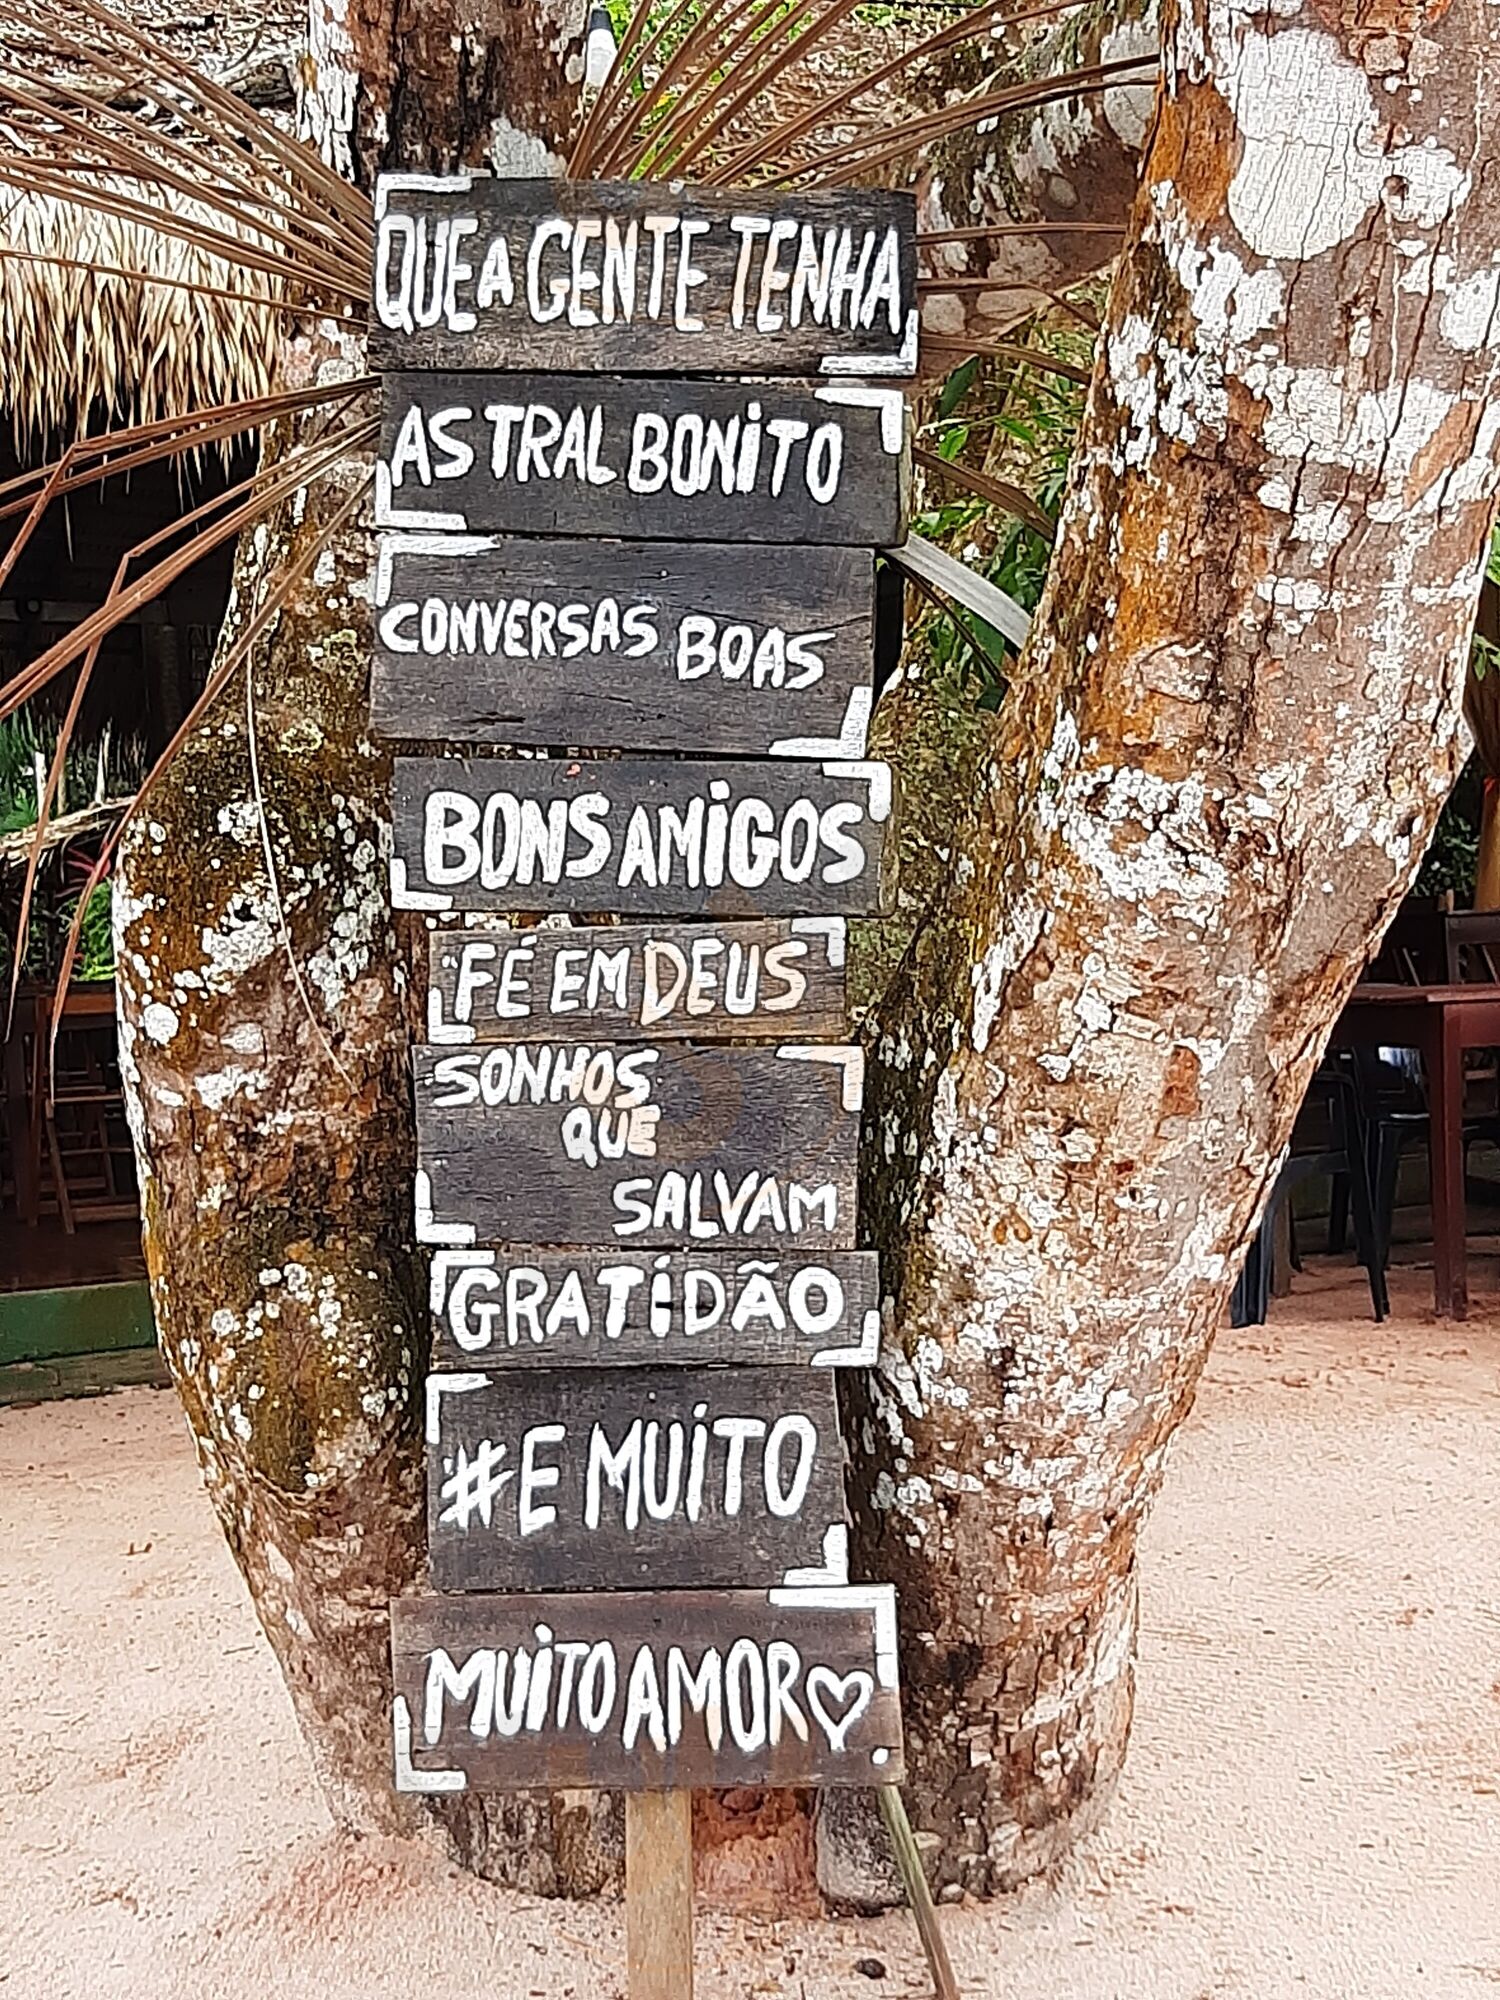 QUE A GENTE TENHA
ASTRAL BONITO
CONVERSAS BOAS
BONS AMIGOS
FÉ EM DEUS
SONHOS
QUE
SALVAM
GRATIDÃO
#E MUITO
MUITO AMOR♡.